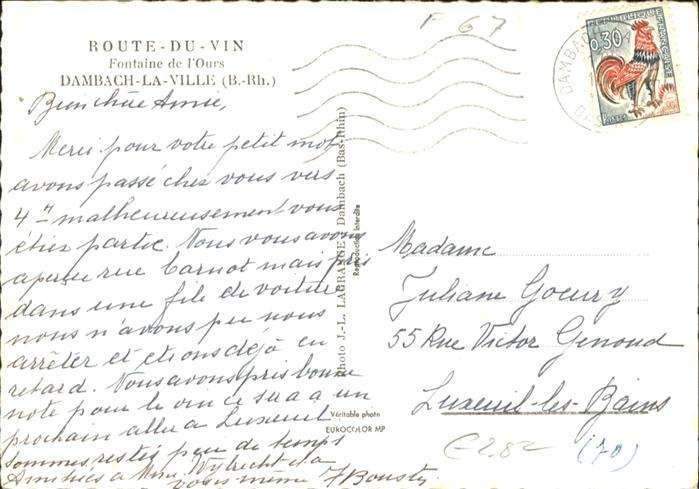 F 67
ROUTE-DU-VIN
Fontaine de l'Ours
DAMBACH-LA-VILLE (B.-Rh.)
0,30
POSTES
DAMBACH
Bien chère Amie,
Merci pour votre petit mot
avons passé chez vous vers
4 H malheureusement vous
étiez partie. Nous vous avons
aperçu rue Carnot mais pris
dans une file de voiture
nous n'avons pu nous
arrêter et étions déjà en
retard. Nous avons pris bonne
note pour le vin ce sera a un
prochain aller a Luxeuil
Sommes restés peu de temps
Amitiés a Mme et a
vous même
Photo J.-L. LAGRANGE, Dambach (Bas-Rhin)
Reproduction interdite
Véritable photo
EUROCOLOR MP
Madame
Juliane Goeury
55 Rue Victor Genoud
Luxeuil-les-Bains
(70)